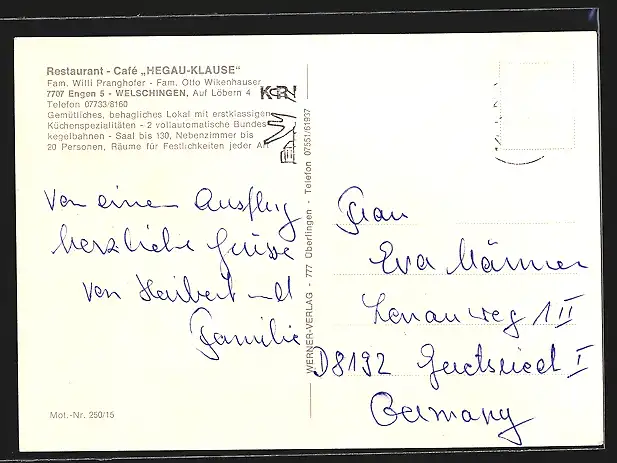 Restaurant - Café „HEGAU-KLAUSE"
Fam. Willi Pranghofer - Fam. Otto Wikenhauser
7707 Engen 5 - WELSCHINGEN, Auf Löbern 4
Telefon 07733/8160
Gemütliches, behagliches Lokal mit erstklassigen
Küchenspezialitäten - 2 vollautomatische Bundes-
kegelbahnen - Saal bis 130, Nebenzimmer bis
20 Personen, Räume für Festlichkeiten jeder Art
Von einem Ausflug
herzliche Grüsse
von Heribert und
Familie
Mot.-Nr. 250/15
WERNER-VERLAG - 777 Überlingen - Telefon 07551/61937
Frau
Eva Männer
Lenauweg 1 II
D8192 Geretsried I
Germany